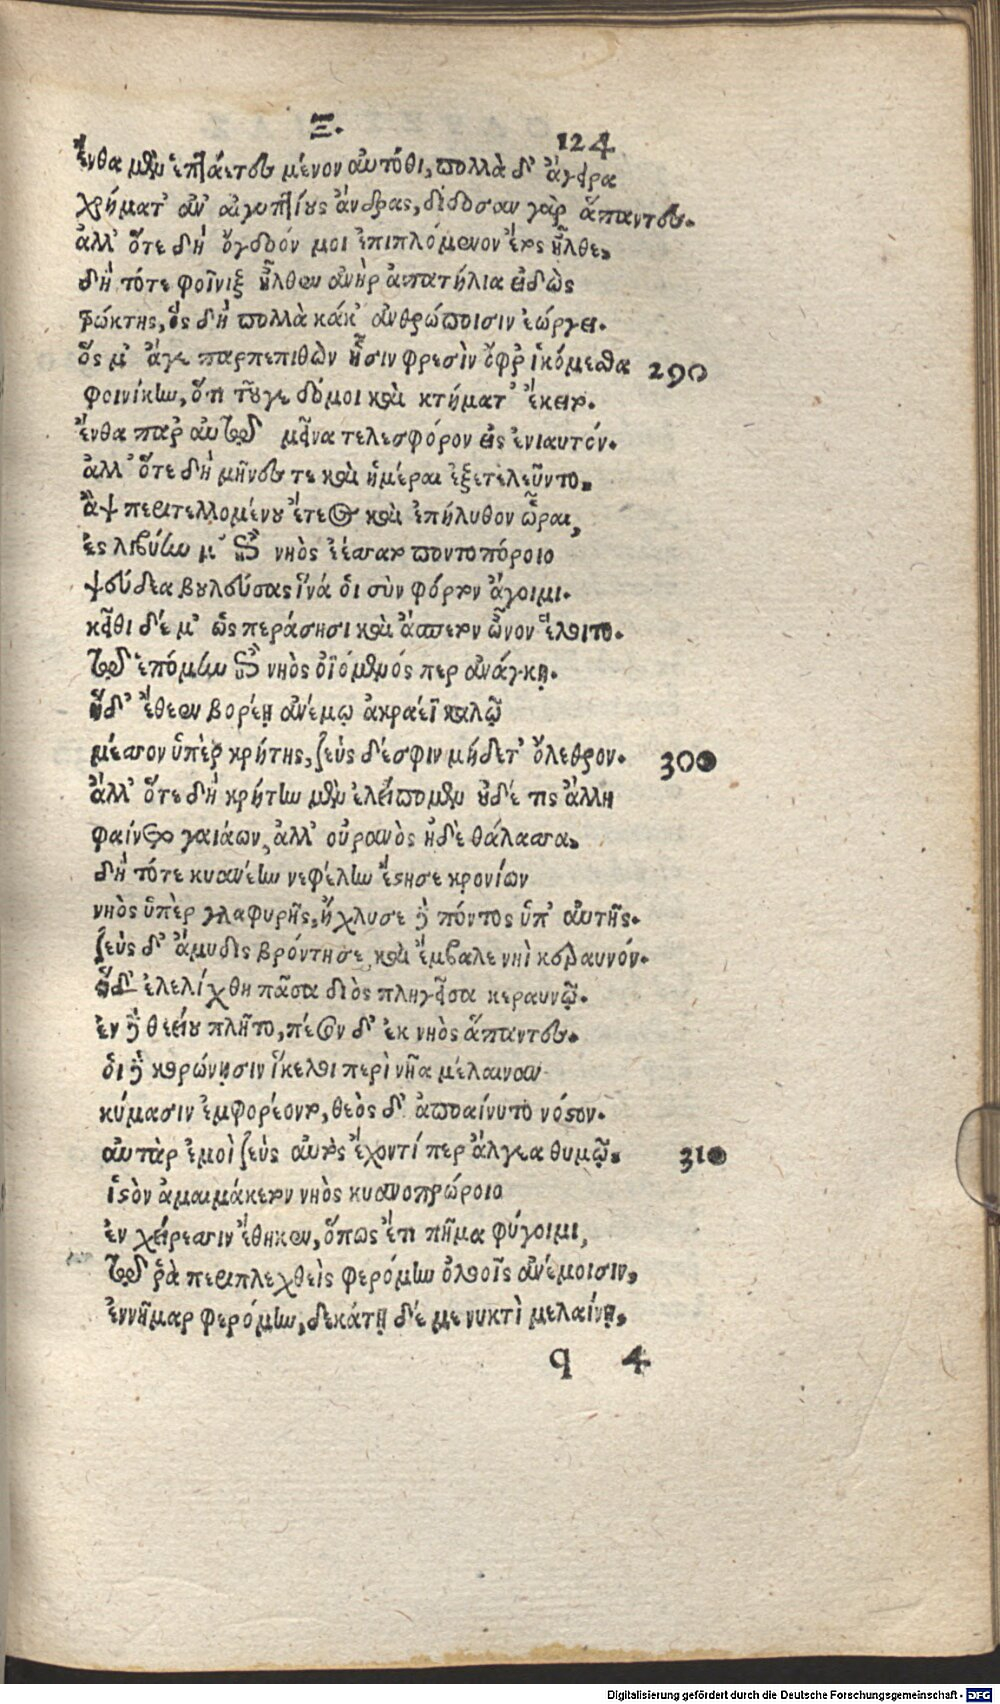 Ξ.
124
ἔνθα μὲν ἑπτάετες μένον αὐτόθι, πολλὰ δ' ἄγειρα
χρήματ' ἀν' αἰγυπτίους ἄνδρας, δίδοσαν γὰρ ἅπαντες.
ἀλλ' ὅτε δὴ ὄγδοόν μοι ἐπιπλόμενον ἔτος ἦλθε,
δὴ τότε φοῖνιξ ἦλθεν ἀνὴρ ἀπατήλια εἰδὼς
τρώκτης, ὃς δὴ πολλὰ κάκ' ἀνθρώποισιν ἐώργει.
ὅς μ' ἄγε παρπεπιθὼν ᾗσιν φρεσὶν ὄφρ' ἱκόμεσθα 290
φοινίκην, ὅτι τοῦγε δόμοι καὶ κτήματ' ἔκειτο.
ἔνθα παρ' αὐτῷ μεῖνα τελεσφόρον εἰς ἐνιαυτόν.
ἀλλ' ὅτε δὴ μῆνές τε καὶ ἡμέραι ἐξετελεῦντο,
ἂψ περιτελλομένου ἔτεος καὶ ἐπήλυθον ὧραι,
ἐς λιβύην μ' ἐπὶ νηὸς ἐέσσατο ποντοπόροιο
ψεύδεα βουλεύσας ἵνά οἱ σὺν φόρτον ἄγοιμι.
κεῖθι δέ μ' ὡς περάσησι καὶ ἄσπετον ὦνον ἕλοιτο.
τῷ ἑπόμην ἐπὶ νηὸς ὀϊόμενός περ ἀνάγκῃ.
ἡ δ' ἔθεεν βορέῃ ἀνέμῳ ἀκραέϊ καλῷ
μέσσον ὑπὲρ κρήτης, ζεὺς δέ σφιν μήδετ' ὄλεθρον. 300
ἀλλ' ὅτε δὴ κρήτην μὲν ἐλείπομεν οὐδέ τις ἄλλη
φαίνετο γαιάων, ἀλλ' οὐρανὸς ἠδὲ θάλασσα,
δὴ τότε κυανέην νεφέλην ἔστησε κρονίων
νηὸς ὑπὲρ γλαφυρῆς, ἤχλυσε δὲ πόντος ὑπ' αὐτῆς.
ζεὺς δ' ἄμυδις βρόντησε, καὶ ἔμβαλε νηὶ κεραυνόν.
ἡ δ' ἐλελίχθη πᾶσα διὸς πληγεῖσα κεραυνῷ.
ἐν δὲ θεείου πλῆτο, πέσον δ' ἐκ νηὸς ἅπαντες.
οἱ δὲ κορώνῃσιν ἴκελοι περὶ νῆα μέλαιναν
κύμασιν ἐμφορέοντο, θεὸς δ' ἀποαίνυτο νόστον.
αὐτὰρ ἐμοὶ ζεὺς αὐτὸς ἔχοντί περ ἄλγεα θυμῷ, 310
ἱστὸν ἀμαιμάκετον νηὸς κυανοπρώροιο
ἐν χείρεσσιν ἔθηκεν, ὅπως ἔτι πῆμα φύγοιμι,
τῷ ῥὰ περιπλεχθεὶς φερόμην ὀλοοῖς ἀνέμοισιν,
ἐννῆμαρ φερόμην, δεκάτῃ δέ με νυκτὶ μελαίνῃ,
q 4
Digitalisierung gefördert durch die Deutsche Forschungsgemeinschaft - DFG